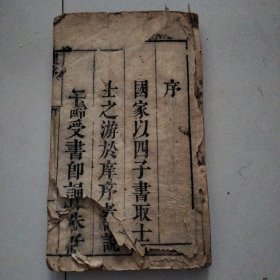 序
國家以四子書取士
士之游於庠序者
年齡受書即誦朱